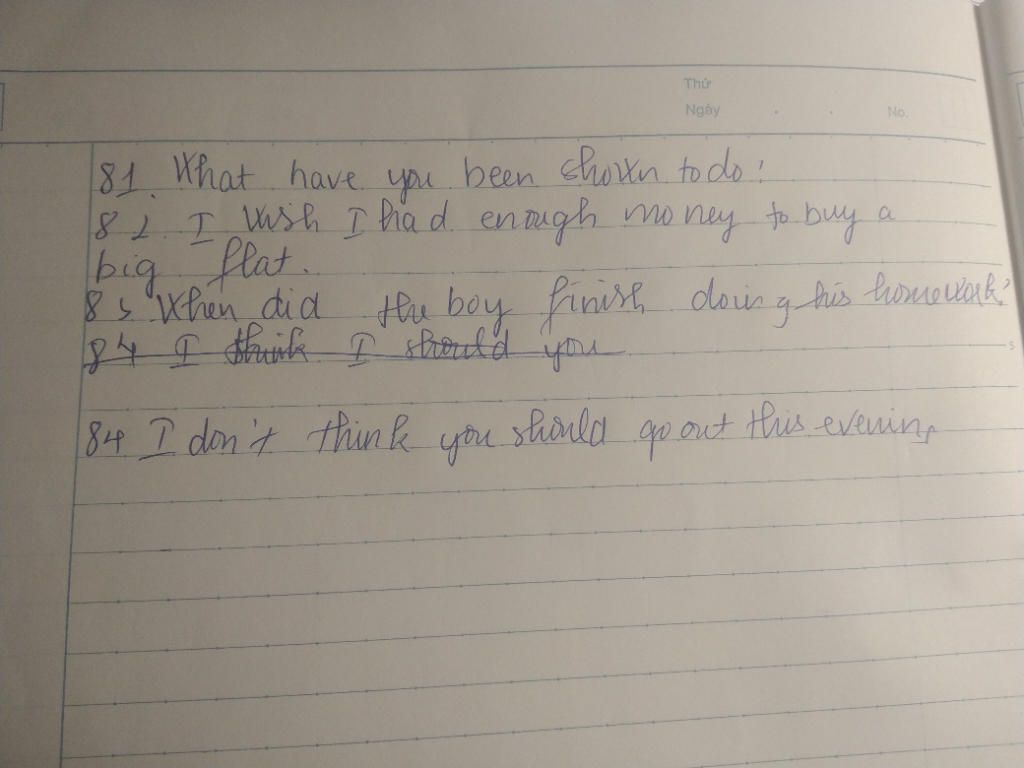 Thứ
Ngày . . No.
81. What have you been shown to do?
82. I wish I had enough money to buy a
big flat.
83 When did the boy finish doing his homework?
84 I think I should you
84 I don't think you should go out this evening